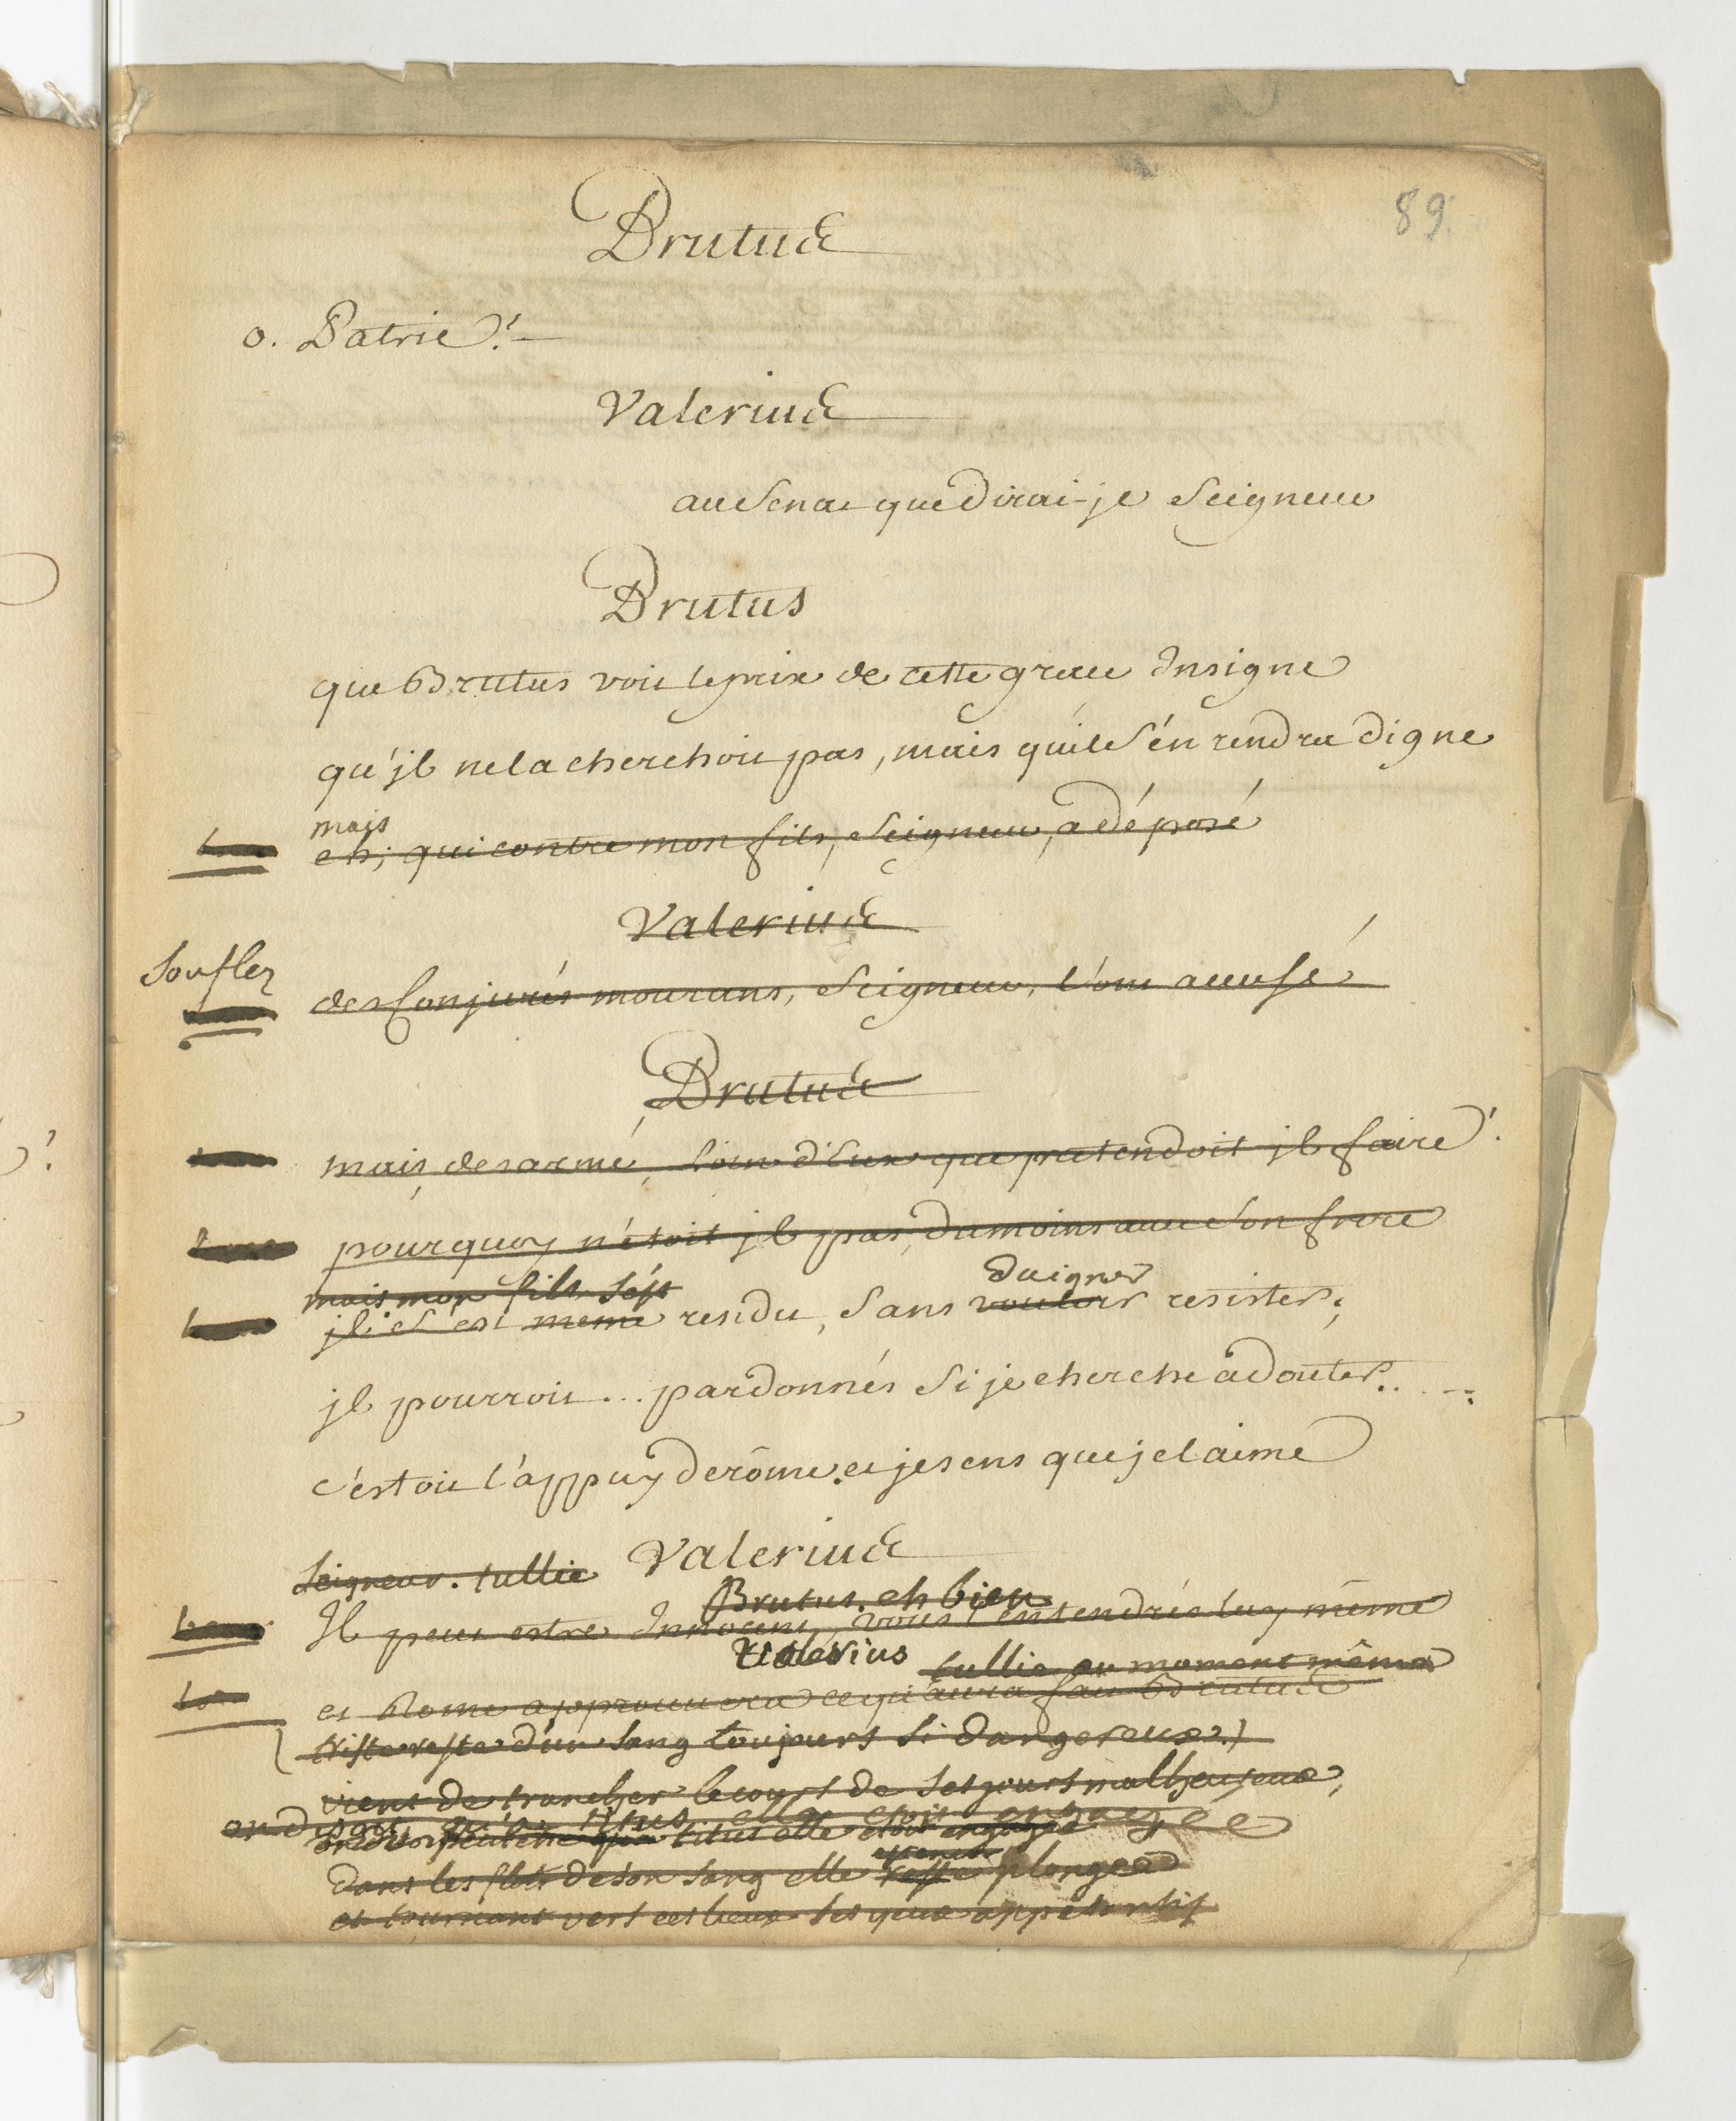 89.
Brutus
o. Patrie!
Valerius
au Senat que dirai-je Seigneur
Brutus
que Brutus voit le prix de cette grace Insigne
qu'jl ne la cherchoit pas, mais qu'il s'en rendra digne
mais
eh; qui contre mon fils, Seigneur, a déposé
Valerius
Souflez
des Conjurés mourans, Seigneur, l'ont accusé
Brutus
mais, desarmé, loin d'Eux que pretendoit jl faire!
pourquoy n'étoit jl pas, du moins avec Son frere
mais mon fils s'est daigner
jl S'est meme rendu, Sans vouloir resister;
jl pourroit... pardonnés Si je cherche a douter....
c'estoit l'appuy de rôme. et je sens que je l'aime
Valerius
Seigneur. tullie
Brutus. eh bien
Il peut estre Innocent, vous l'entendrés luy même
Valerius tullie au moment même
et Rome approuvera ce qu'aura fait Brutus
(triste reste d'un sang toujours si dangereux)
vient de trancher le cours de ses jours malheureux,
on disoit qu'a titus elle etoit engagée
on dit peutetre qu'a titus elle etoit engagée
dans les flots de son sang elle reste plongée
et tournant vers ces lieux ses yeux appesantis